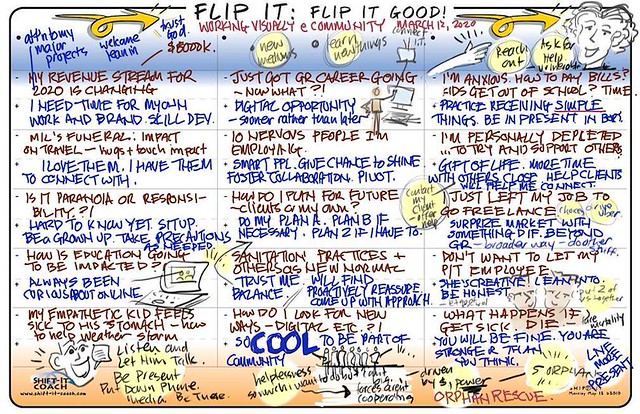 FLIP IT: FLIP IT GOOD!
WORKING VISUALLY e COMMUNITY MARCH 12, 2020
major
projects
welcome
team in
trust
God.
$8000k.
new
mediums
learn
new things
connect
IT.
Reach
out
Ask for
Help
MY REVENUE STREAM FOR
2020 IS CHANGING
I NEED TIME FOR MY OWN
WORK AND BRAND. SKILL DEV.
MIL'S FUNERAL: IMPACT
ON TRAVEL - hugs + touch impact
I LOVE THEM. I HAVE THEM
TO CONNECT WITH.
IS IT PARANOIA OR RESPONSI-
BILITY. ?!
HARD TO KNOW YET. SIT UP.
BE a GROWN UP. TAKE PRECAUTIONS
AS NEEDED.
HOW IS EDUCATION GOING
TO BE IMPACTED?
ALWAYS BEEN
CURIOUS ABOUT ONLINE.
MY EMPATHETIC KID FEELS
SICK TO HIS STOMACH - how
to help weather storm
Listen and
Let Him Talk
Be Present
Put Down Phone.
media. Be There.
SHIFT-IT
COACH
www.shift-it-coach.com
JUST GOT GR CAREER GOING
- NOW WHAT ?!
DIGITAL OPPORTUNITY
- sooner rather than later
10 NERVOUS PEOPLE I'M
EMPLOYING.
SMART PPL. GIVE CHANCE TO SHINE.
FOSTER COLLABORATION. PIVOT.
HOW DO I PLAN FOR FUTURE
- clients on my own?
DO MY PLAN A. PLAN B IF
NECESSARY. PLAN Z IF I HAVE TO.
contact
my
client
offer
help
SANITATION PRACTICES +
OTHERS OLS NEW NORMAL
TRUST ME. WILL FIND
BALANCE
PROACTIVELY REASSURE
COME UP WITH APPROACH.
HOW DO I LOOK FOR NEW
WAYS - DIGITAL ETC. ?!
SO COOL TO BE PART OF
COMMUNITY
helplessness
so much i want to do but
forces aren't
cooperating
I'M ANXIOUS. HOW TO PAY BILLS?
KIDS GET OUT OF SCHOOL? TIME.
PRACTICE RECEIVING SIMPLE
THINGS. BE IN PRESENT IN BODY.
I'M PERSONALLY DEPLETED
...TO TRY AND SUPPORT OTHERS
GIFT OF LIFE. MORE TIME
WITH OTHERS CLOSE. HELP CLIENTS
WILL HELP ME CONNECT.
JUST LEFT MY JOB TO
GO FREELANCE
SURPRIZE MARKET WITH
SOMETHING DIF. BEYOND
GR - broader way - do other
stuff.
DON'T WANT TO LET MY
P/T EMPLOYEE
SHE'S CREATIVE! LEAN INTO
BE HONEST.
WHAT HAPPENS IF
GET SICK DIE.
face
mortality
YOU WILL BE FINE. YOU ARE
STRONGER THAN
YOU THINK.
LIVE
MORE
PRESENT
driven
by $ power
5 ORPHAN
ORPHAN RESCUE.